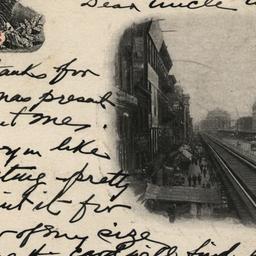 Dear Uncle
thanks for
mas present
nt me.
you like
ting pretty
int it for
of my size
card will find